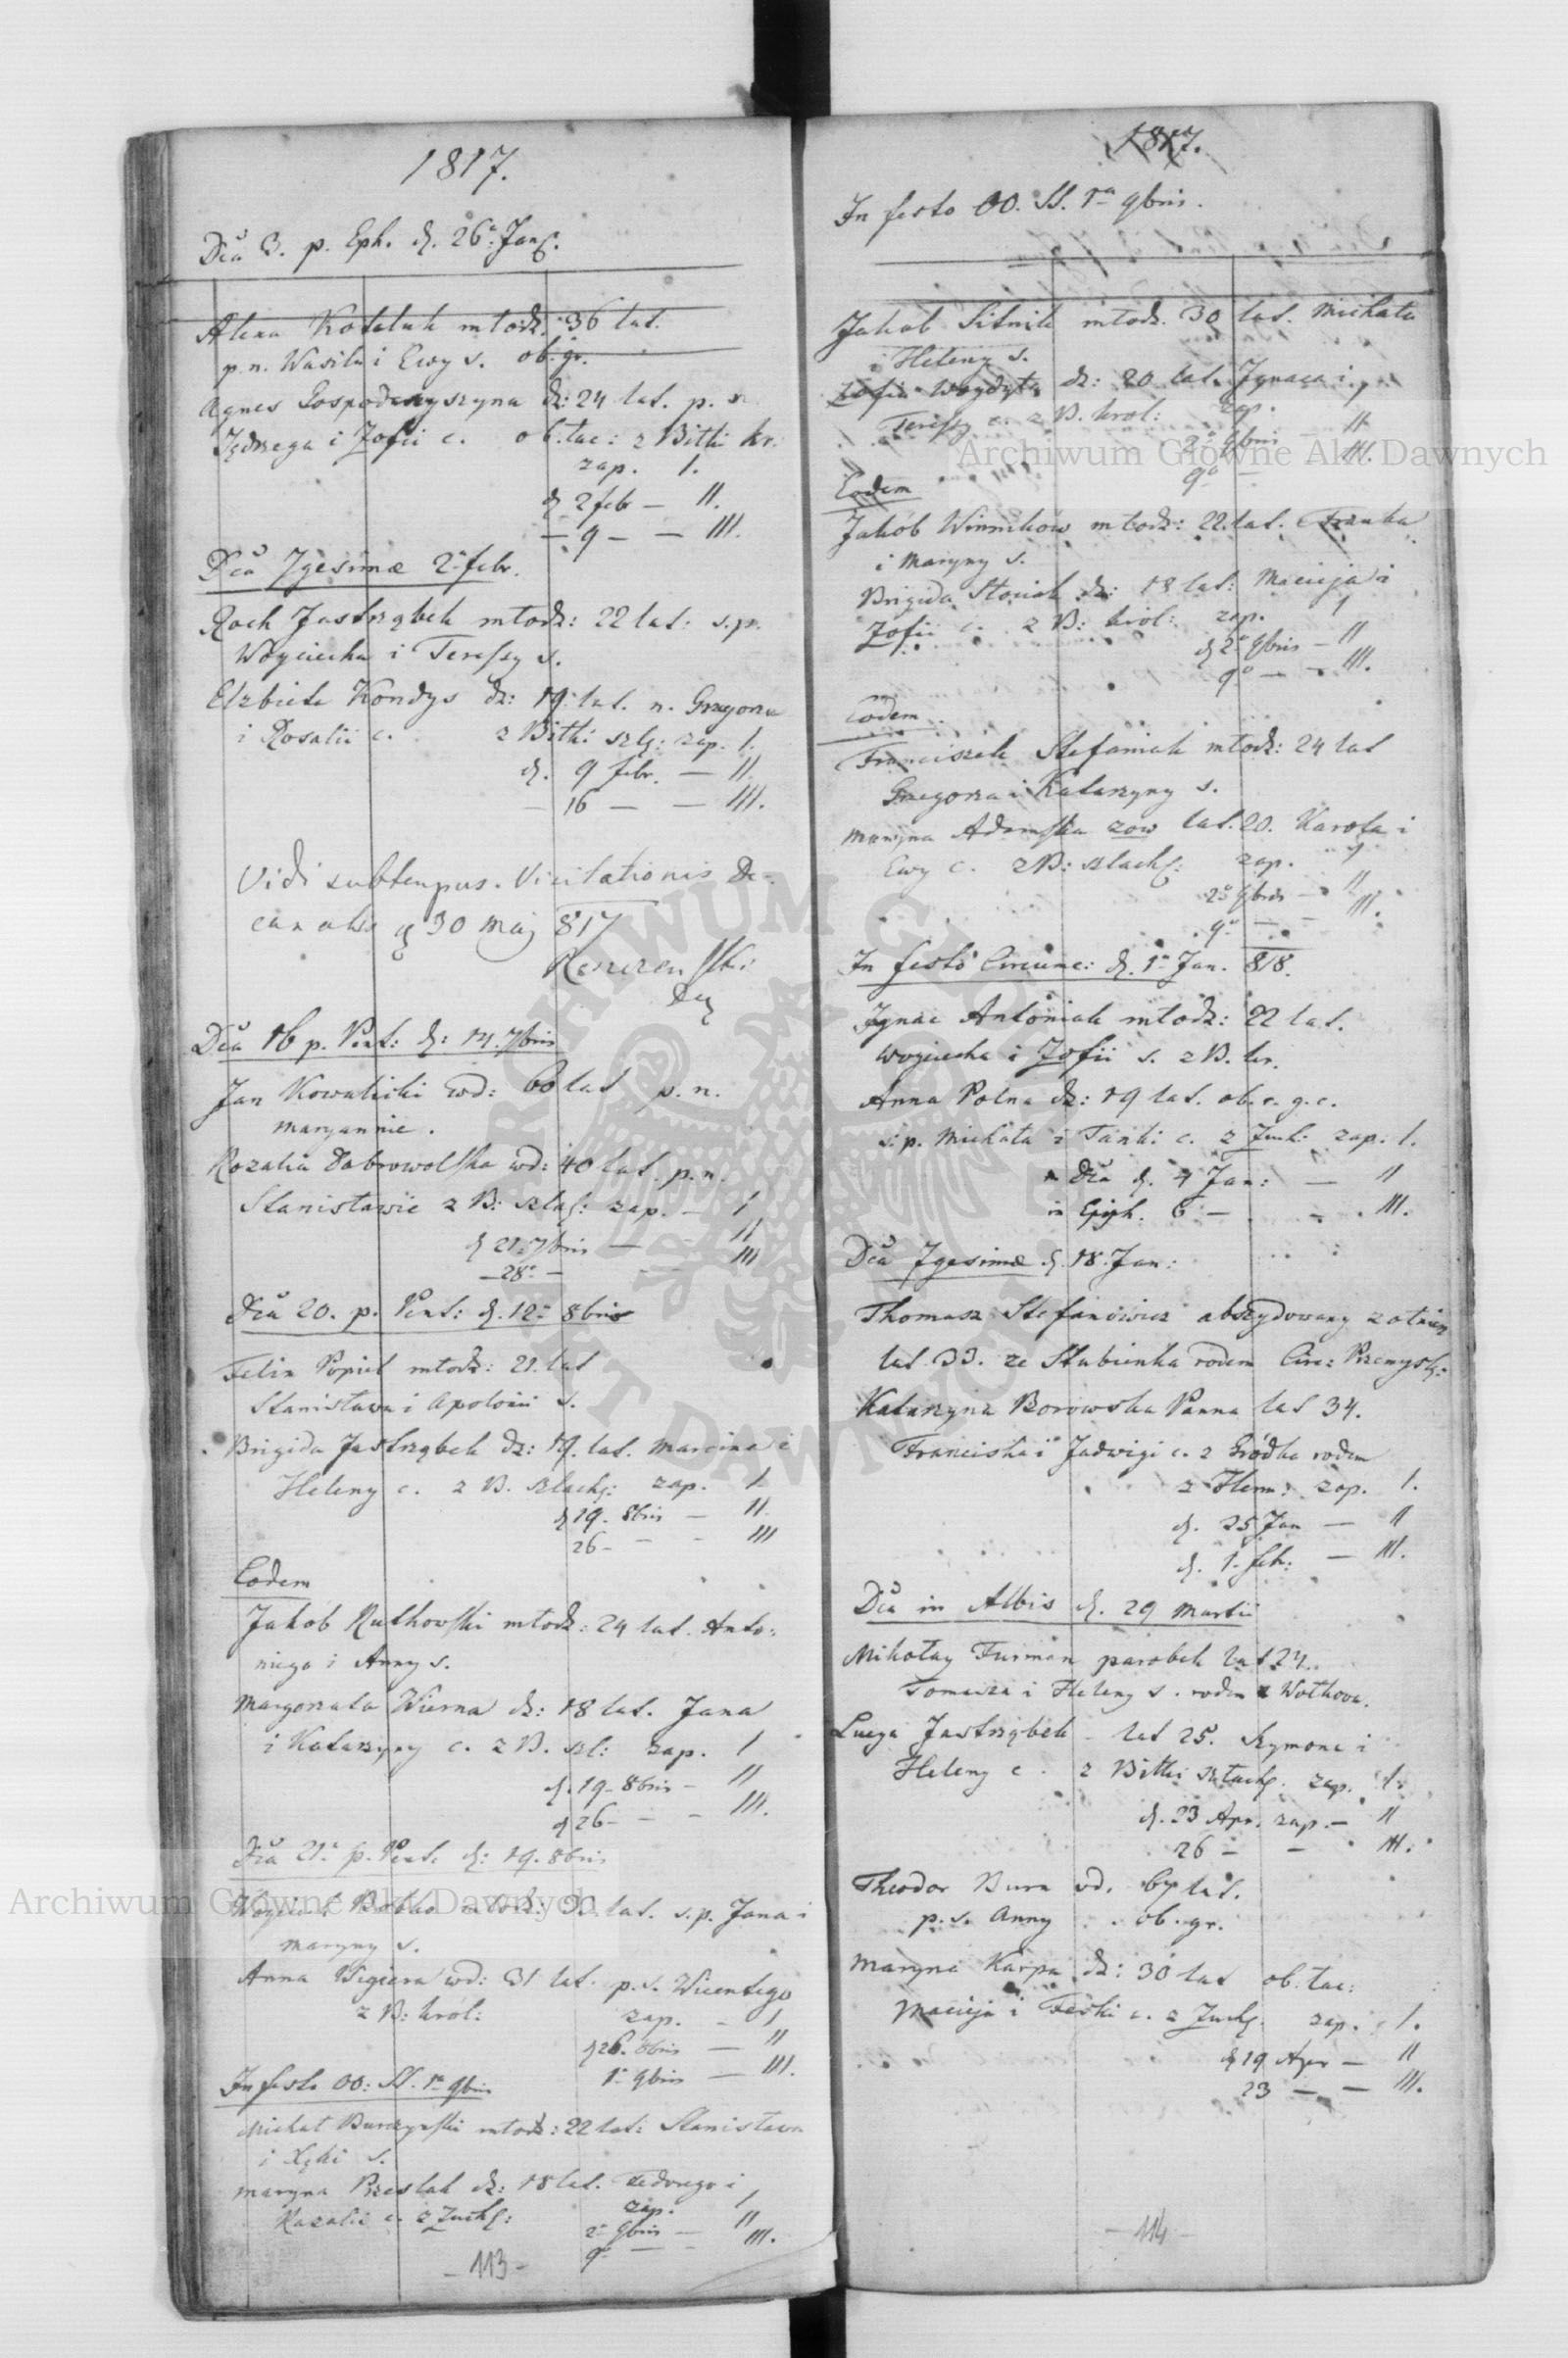 1817.
Dca 3. p. Eph. d. 26a Jan.
Alexa młodz. 36 lat.
p. n. Wasila i Ewy s. ob. gr.
Agnes dz: 24 lat. p. n.
Jędrzega i Zofii c. ob. łac: z Bitki kr.
zap. 1.
d 2 febr — II.
— 9 — — III.
Dca 7gesimæ 2a febr.
Roch Jastrząbek młodz: 22 lat: s. p.
Woyciecha i Teressy s.
Elzbieta Kondys dz: 19 lat. n. Grzegorza
i Rosalii c. z Bitki szl: zap. 1.
d. 9 febr. — II.
— 16 — — III.
Vidi sub tempus Visitationis De-
canalis d 30 Maj 817
Dca 16 p. Pent: d: 14. 7bris
Jan Kowalicki wd: 60 lat p. n.
Maryannie.
Rozalia Dabrowolska wd: 40 lat. p. n.
Stanisławie z B: szlac: zap. — 1
d 21. 7bris — II
— 28a — — III
Dca 20. p. Pent: d. 12a 8bris
Felix Popiel młodz: 21. lat
Stanisława i Apolonii s.
Brigida Jastrząbek dz: 19. lat. Marcina i
Heleny c. z B. szlach: zap. 1.
d 19. 8bris — II.
26 — — III
Eodem
Jakob Rutkowski młodz: 24 lat. Anto:
niego i Anny s.
Margorzata Wierna dz: 18 lat. Jana
i Katarzyny c. z B. szl: zap. 1
d. 19. 8bris — II
d 26 — — III.
Dca 21a p. Pent. d: 19. 8bris
lat. s. p. Jana i
Maryny s.
Anna wd: 31 lat. p. s. Wicentego
z B: król: zap. — 1
d 26. 8bris — II
1a 9bris — III.
In festo OO: SS. 1a 9bris
Michał Burczynski młodz: 22 lat: Stanisława
i s.
Maryna dz: 18 lat. i
Rozalii c. z Zuch: zap. 1
2a 9bris — II
9a — — III.
— 113 —
1817.
In festo OO. SS. 1a 9bris.
Jakob Sitnik młodz. 30 lat. Michała
i Heleny s.
Zofia Woydyła dz: 20 lat. Ignaca i
Teressy c. z B. krol: zap. 1
2a 9bris — II.
9a — III.
Eodem
Jakób Winnikow młodz: 22 lat. Franka
i Maryny s.
Brigida Stoniak dz: 18 lat: Macieja i
Zofii c. z B: król: zap. 1
d 2a 9bris — II
9a — — III.
Eodem.
Franciszek Stefaniak młodz: 24 lat
Gregorza i Katarzyny s.
Maryna Adamska lat. 20. Karola i
Ewy c. z B: szlach: zap. 1
2a 9bris — II
9a — — III.
In festo Circumc: d. 1a Jan. 818.
Ignac Antoniak młodz: 22 lat.
Woyciecha i Zofii s. z B. kr.
Anna Polna dz: 19 lat. ob. r. g. c.
s. p. Michała i Tanki c. z Zuch: zap. 1.
Dca d. 4 Jan: — II
in Epiph. 6 — — III.
Dca 7gesimæ d. 18. Jan:
Thomasz Stefanowicz abszydowany żołnierz
lat 33. ze Stubienka rodem Circ: Przemysl:
Katarzyna Borowska Panna lat 34.
Franciszka i Jadwigi c. z Gródka rodem
z Herm: zap. 1.
d. 25 Jan — II
d. 1. feb: — III.
Dca in Albis d. 29 Martii
Mikołay Furman parobek lat 24.
Tomasza i Heleny s. rodem z Wołkova.
Lucya Jastrząbek — lat 25. Szymona i
Heleny c. z Bitki szlach. zap. 1.
d. 23 Apr. zap. — II
26 — — III.
Theodor Bura wd. 67 lat.
p. s. Anny ob. gr.
Maryna Karpa dz: 30 lat ob. łac:
Macieja i Feski c. z Zuch. zap. 1.
d 19 Apr — II
23 — — III.
— 114 —
Archiwum Główne Akt Dawnych
Archiwum Główne Akt Dawnych
ARCHIWUM GŁÓWNE AKT DAWNYCH